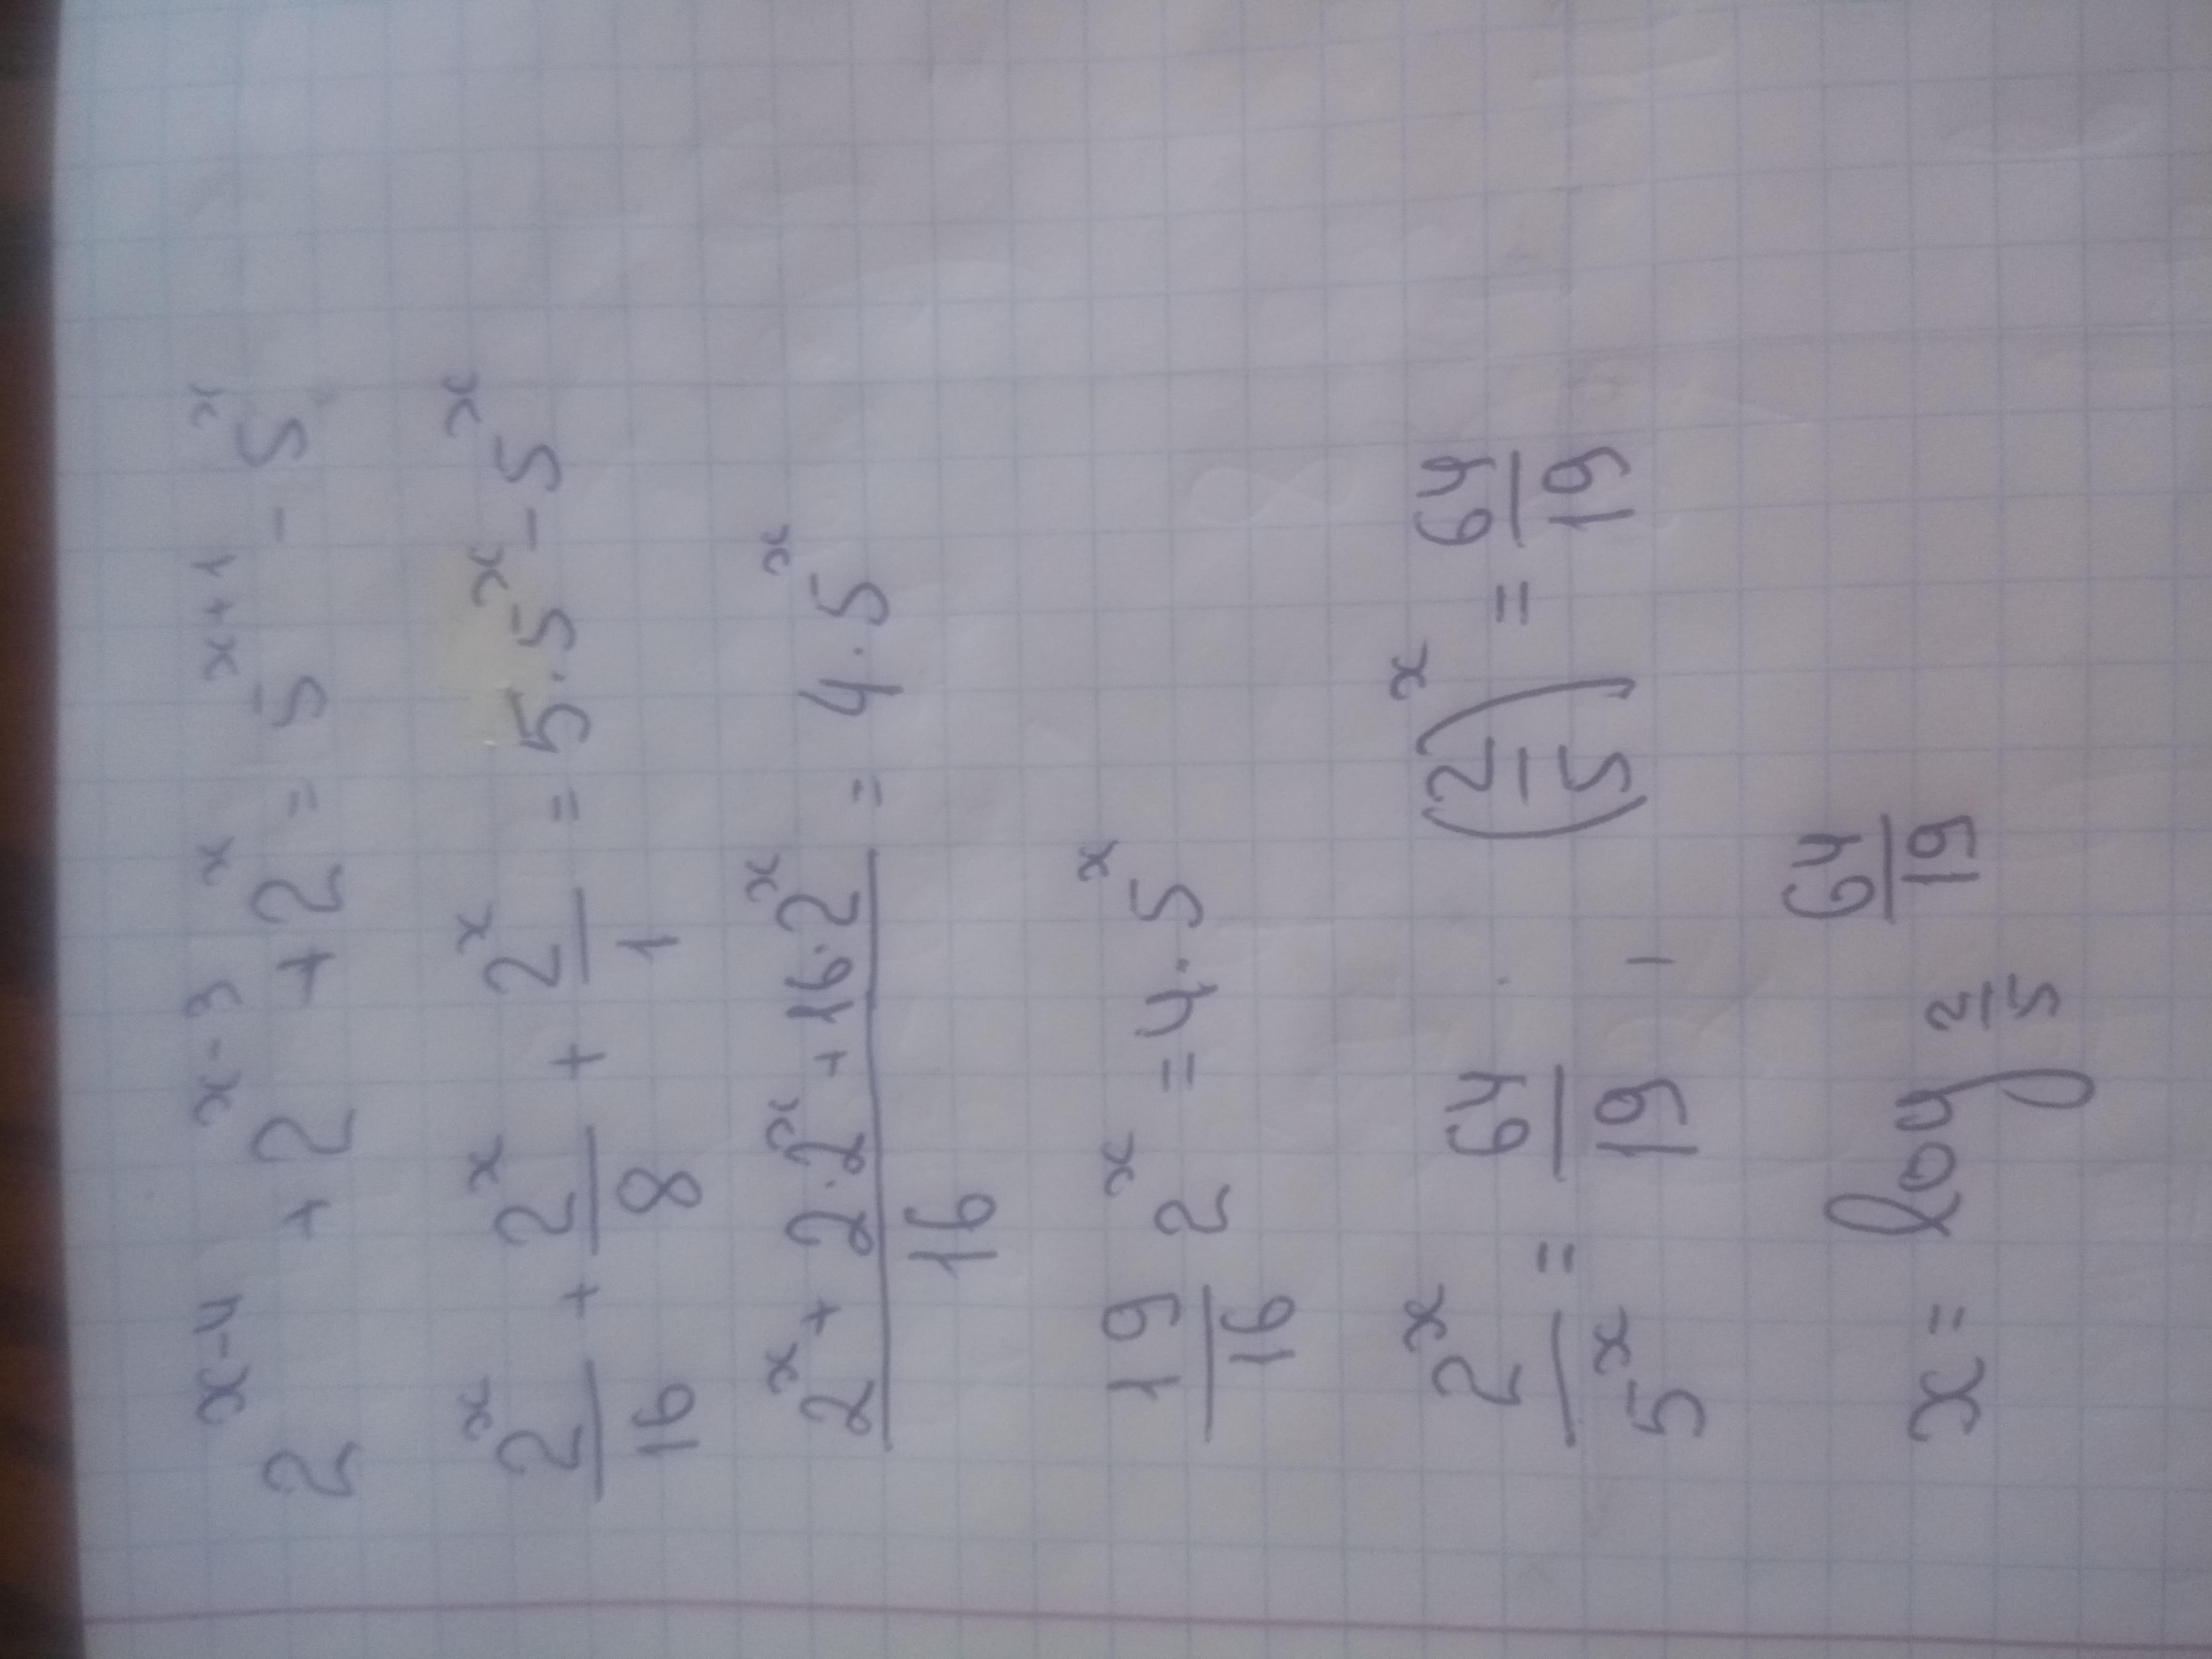 2^{x-4} + 2^{x-3} + 2^x = 5^{x+1} - 5^x
\frac{2^x}{16} + \frac{2^x}{8} + \frac{2^x}{1} = 5 \cdot 5^x - 5^x
\frac{2^x + 2 \cdot 2^x + 16 \cdot 2^x}{16} = 4 \cdot 5^x
\frac{19}{16} 2^x = 4 \cdot 5^x
\frac{2^x}{5^x} = \frac{64}{19} , \left(\frac{2}{5}\right)^x = \frac{64}{19}
x = log_{\frac{2}{5}} \frac{64}{19}